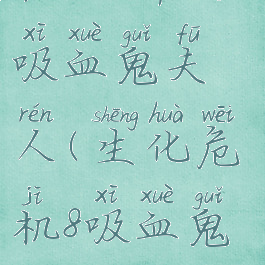 xī xuè guǐ fū
吸血鬼夫
rén shēng huà wēi
人(生化危
jī xī xuè guǐ
机8吸血鬼